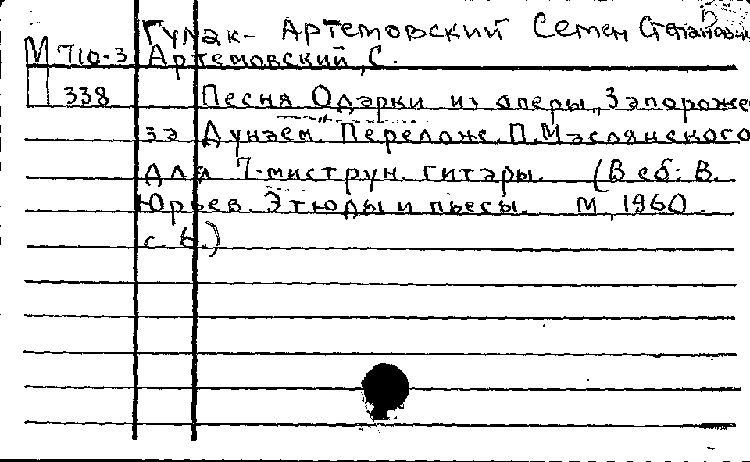 Гулак-Артемовский Семен Степанович
М 710-3 Артемовский, С.
338 Песня Одарки из оперы „Запороже
за Дунаем. Перелож. П. Маслянского
для 7-миструн. гитары. (В сб: В.
Юрьев. Этюды и пьесы. М, 1960.
с. 6.)